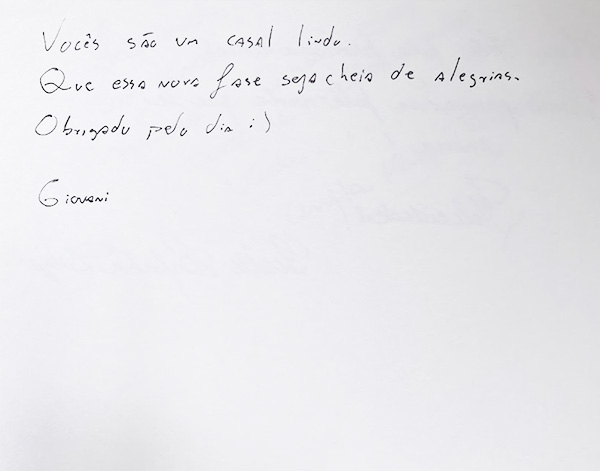 Vocês são um casal lindo.
Que essa nova fase seja cheia de alegrias.
Obrigado pelo dia :)
Giovani